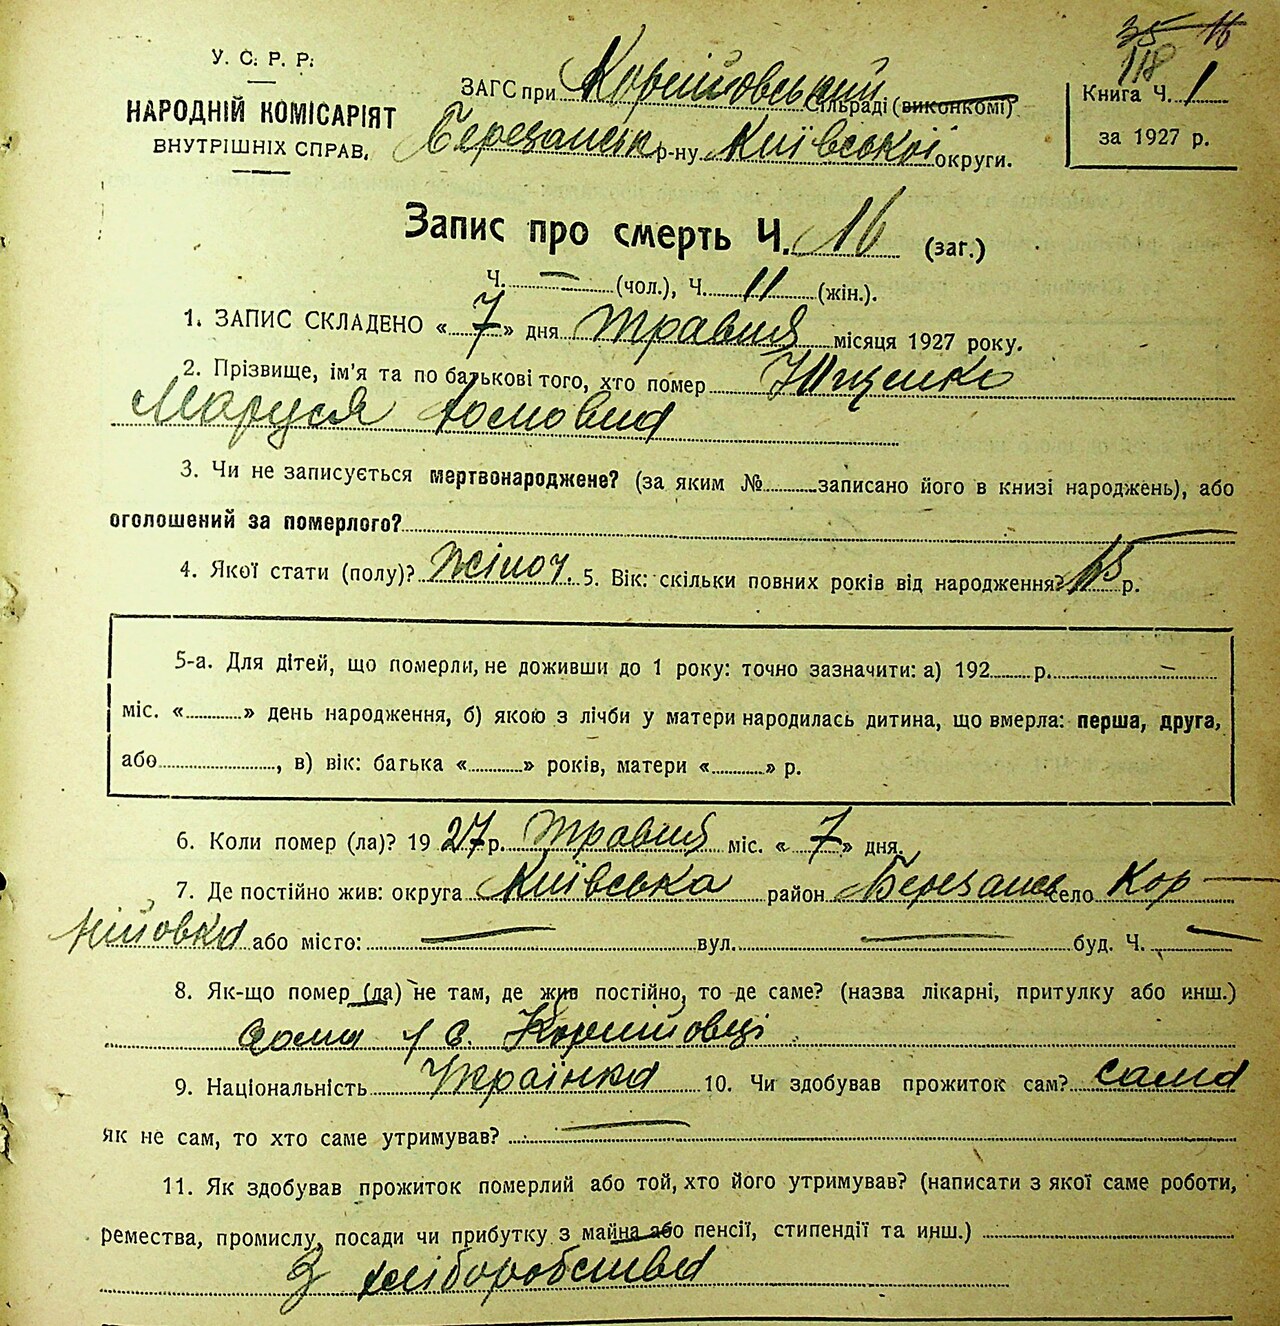 35 16
118
У. С. Р. Р.
НАРОДНІЙ КОМІСАРІЯТ
ВНУТРІШНІХ СПРАВ.
ЗАГС при Корніївській сільраді (виконкомі)
Березанськ р-ну Київської округи.
Книга Ч. 1
за 1927 р.
Запис про смерть Ч. 16 (заг.)
Ч. — (чол.), Ч. 11 (жін.).
1. ЗАПИС СКЛАДЕНО « 7 » дня травня місяця 1927 року.
2. Прізвище, ім'я та по батькові того, хто помер Ющенко
Маруся
3. Чи не записується мертвонароджене? (за яким № записано його в книзі народжень), або
оголошений за померлого? —
4. Якої стати (полу)? жіноч. 5. Вік: скільки повних років від народження? р.
5-а. Для дітей, що померли, не доживши до 1 року: точно зазначити: а) 192 р. —
міс. « » день народження, б) якою з лічби у матери народилась дитина, що вмерла: перша, друга,
або , в) вік: батька « » років, матери « » р.
6. Коли помер (ла)? 1927 р. травня міс. « 7 » дня.
7. Де постійно жив: округа Київська район Березансь село Кор—
нійовка або місто: — вул. — буд. Ч. —
8. Як-що помер (ла) не там, де жив постійно, то де саме? (назва лікарні, притулку або инш.)
дома с. Корнійовці
9. Національність Українка 10. Чи здобував прожиток сам? сама
як не сам, то хто саме утримував? —
11. Як здобував прожиток померлий або той, хто його утримував? (написати з якої саме роботи,
ремества, промислу, посади чи прибутку з майна або пенсії, стипендії та инш.)
З хліборобства